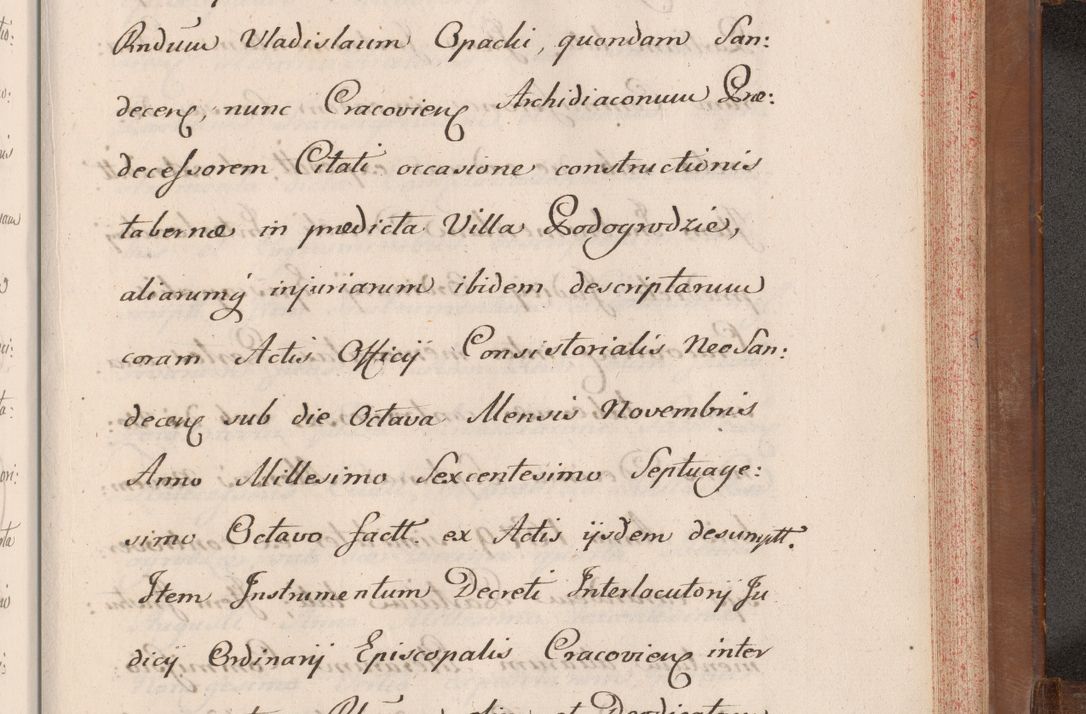 Rndum Vladislaum Opacki, quondam San:
decens, nunc Cracoviens Archidiaconum Præ:
decessorem Citati occasione constructionis
tabernæ in prædicta Villa Podogrodzie,
aliarumq injuriarum ibidem descriptarum
coram Actis Officij Consistorialis NeoSan:
decens sub die Octava Mensis Novembris
Anno Millesimo Sexcentesimo Septuage:
simo Octavo factt. ex Actis ijsdem desumptt.
Item Instrumentum Decreti Interlocutorij Ju
dicij Ordinarij Episcopalis Cracoviens inter